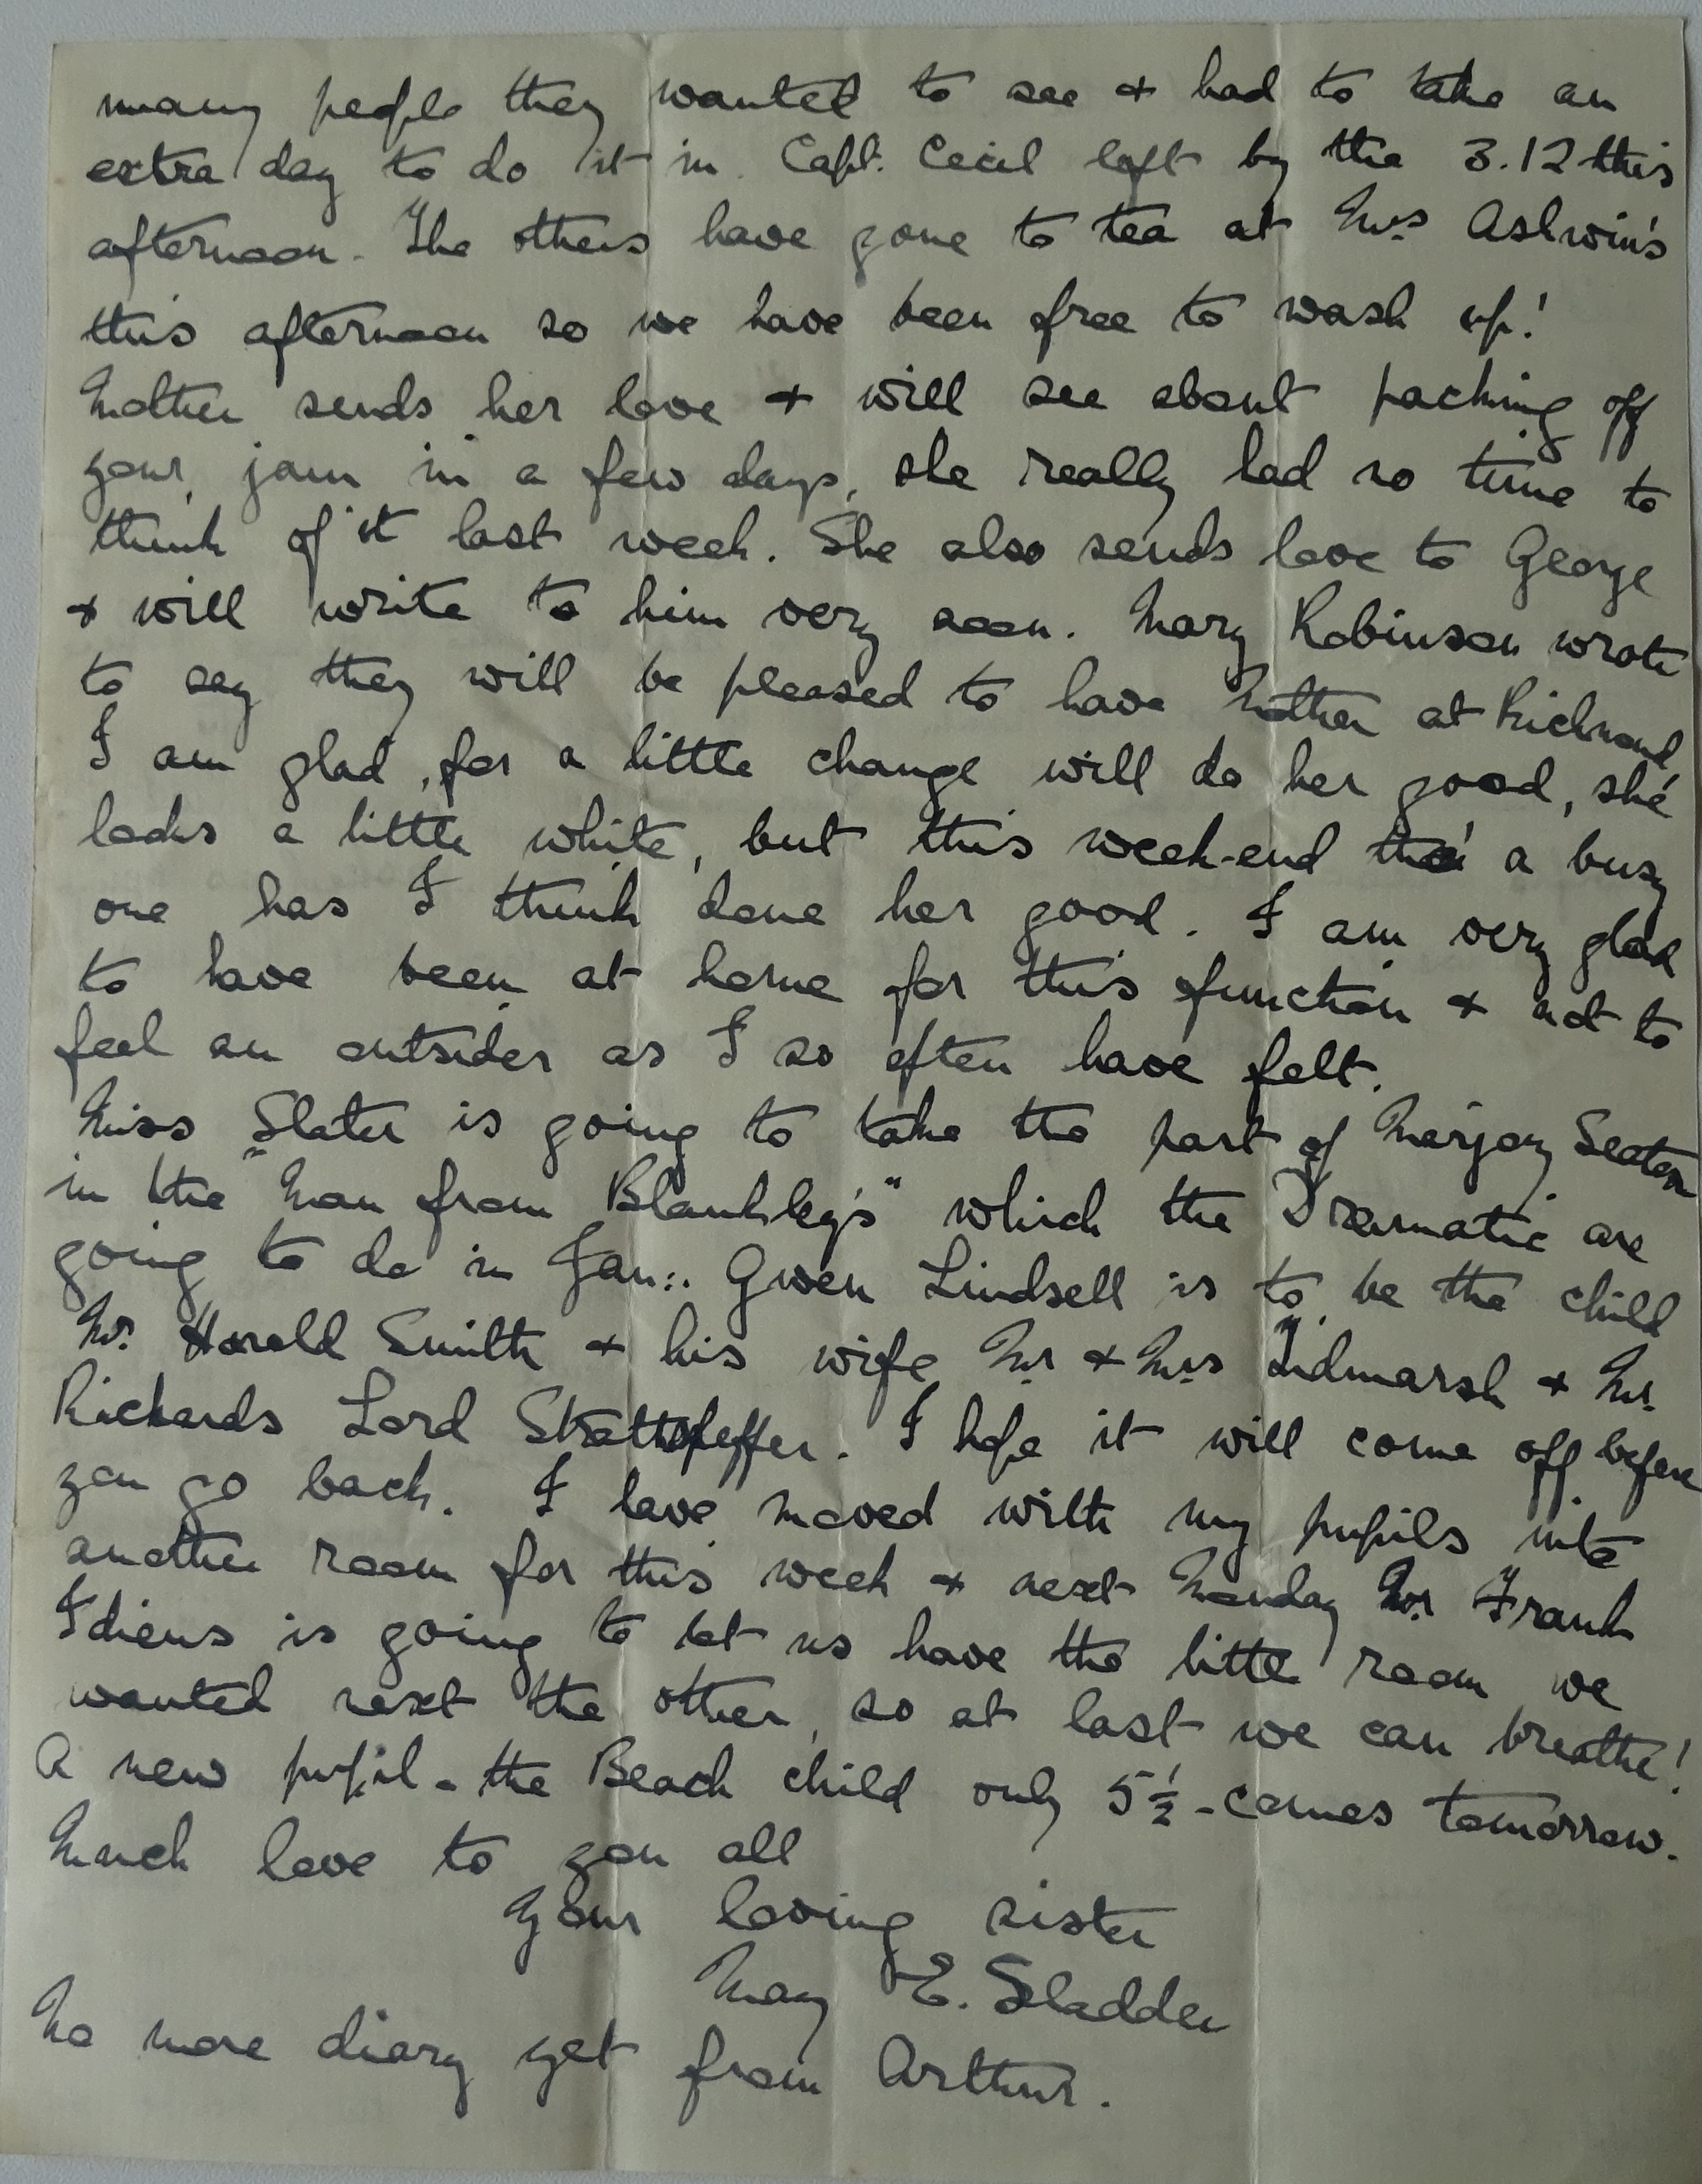 many people they wanted to see & had to take an
extra day to do it in. Capt. Cecil left by the 3.12 this
afternoon. The others have gone to tea at Mrs Ashwin's
this afternoon so we have been free to wash up!
Mother sends her love & will see about packing off
your jam in a few days, she really had no time to
think of it last week. She also sends love to George
& will write to him very soon. Mary Robinson wrote
to say they will be pleased to have Mother at Richmond,
I am glad, for a little change will do her good, she
looks a little white, but this week-end tho' a busy
one has I think done her good. I am very glad
to have been at home for this function & not to
feel an outsider as I so often have felt.
Miss Slater is going to take the part of Marjory Seaton
in the "Man from Blankley's" which the Dramatic are
going to do in Jan:. Gwen Lindsell is to be the child
Mr. Harold Smith & his wife Mr & Mrs Tidmarsh & Mr.
Richards Lord Strathpeffer. I hope it will come off before
you go back. I have moved with my pupils into
another room for this week & next Monday Mr Frank
Idiens is going to let us have the little room we
wanted next the other, so at last we can breathe!
A new pupil - the Beach child only 5½ - comes tomorrow.
Much love to you all
Your loving sister
May E. Sladden
No more diary yet from Arthur.